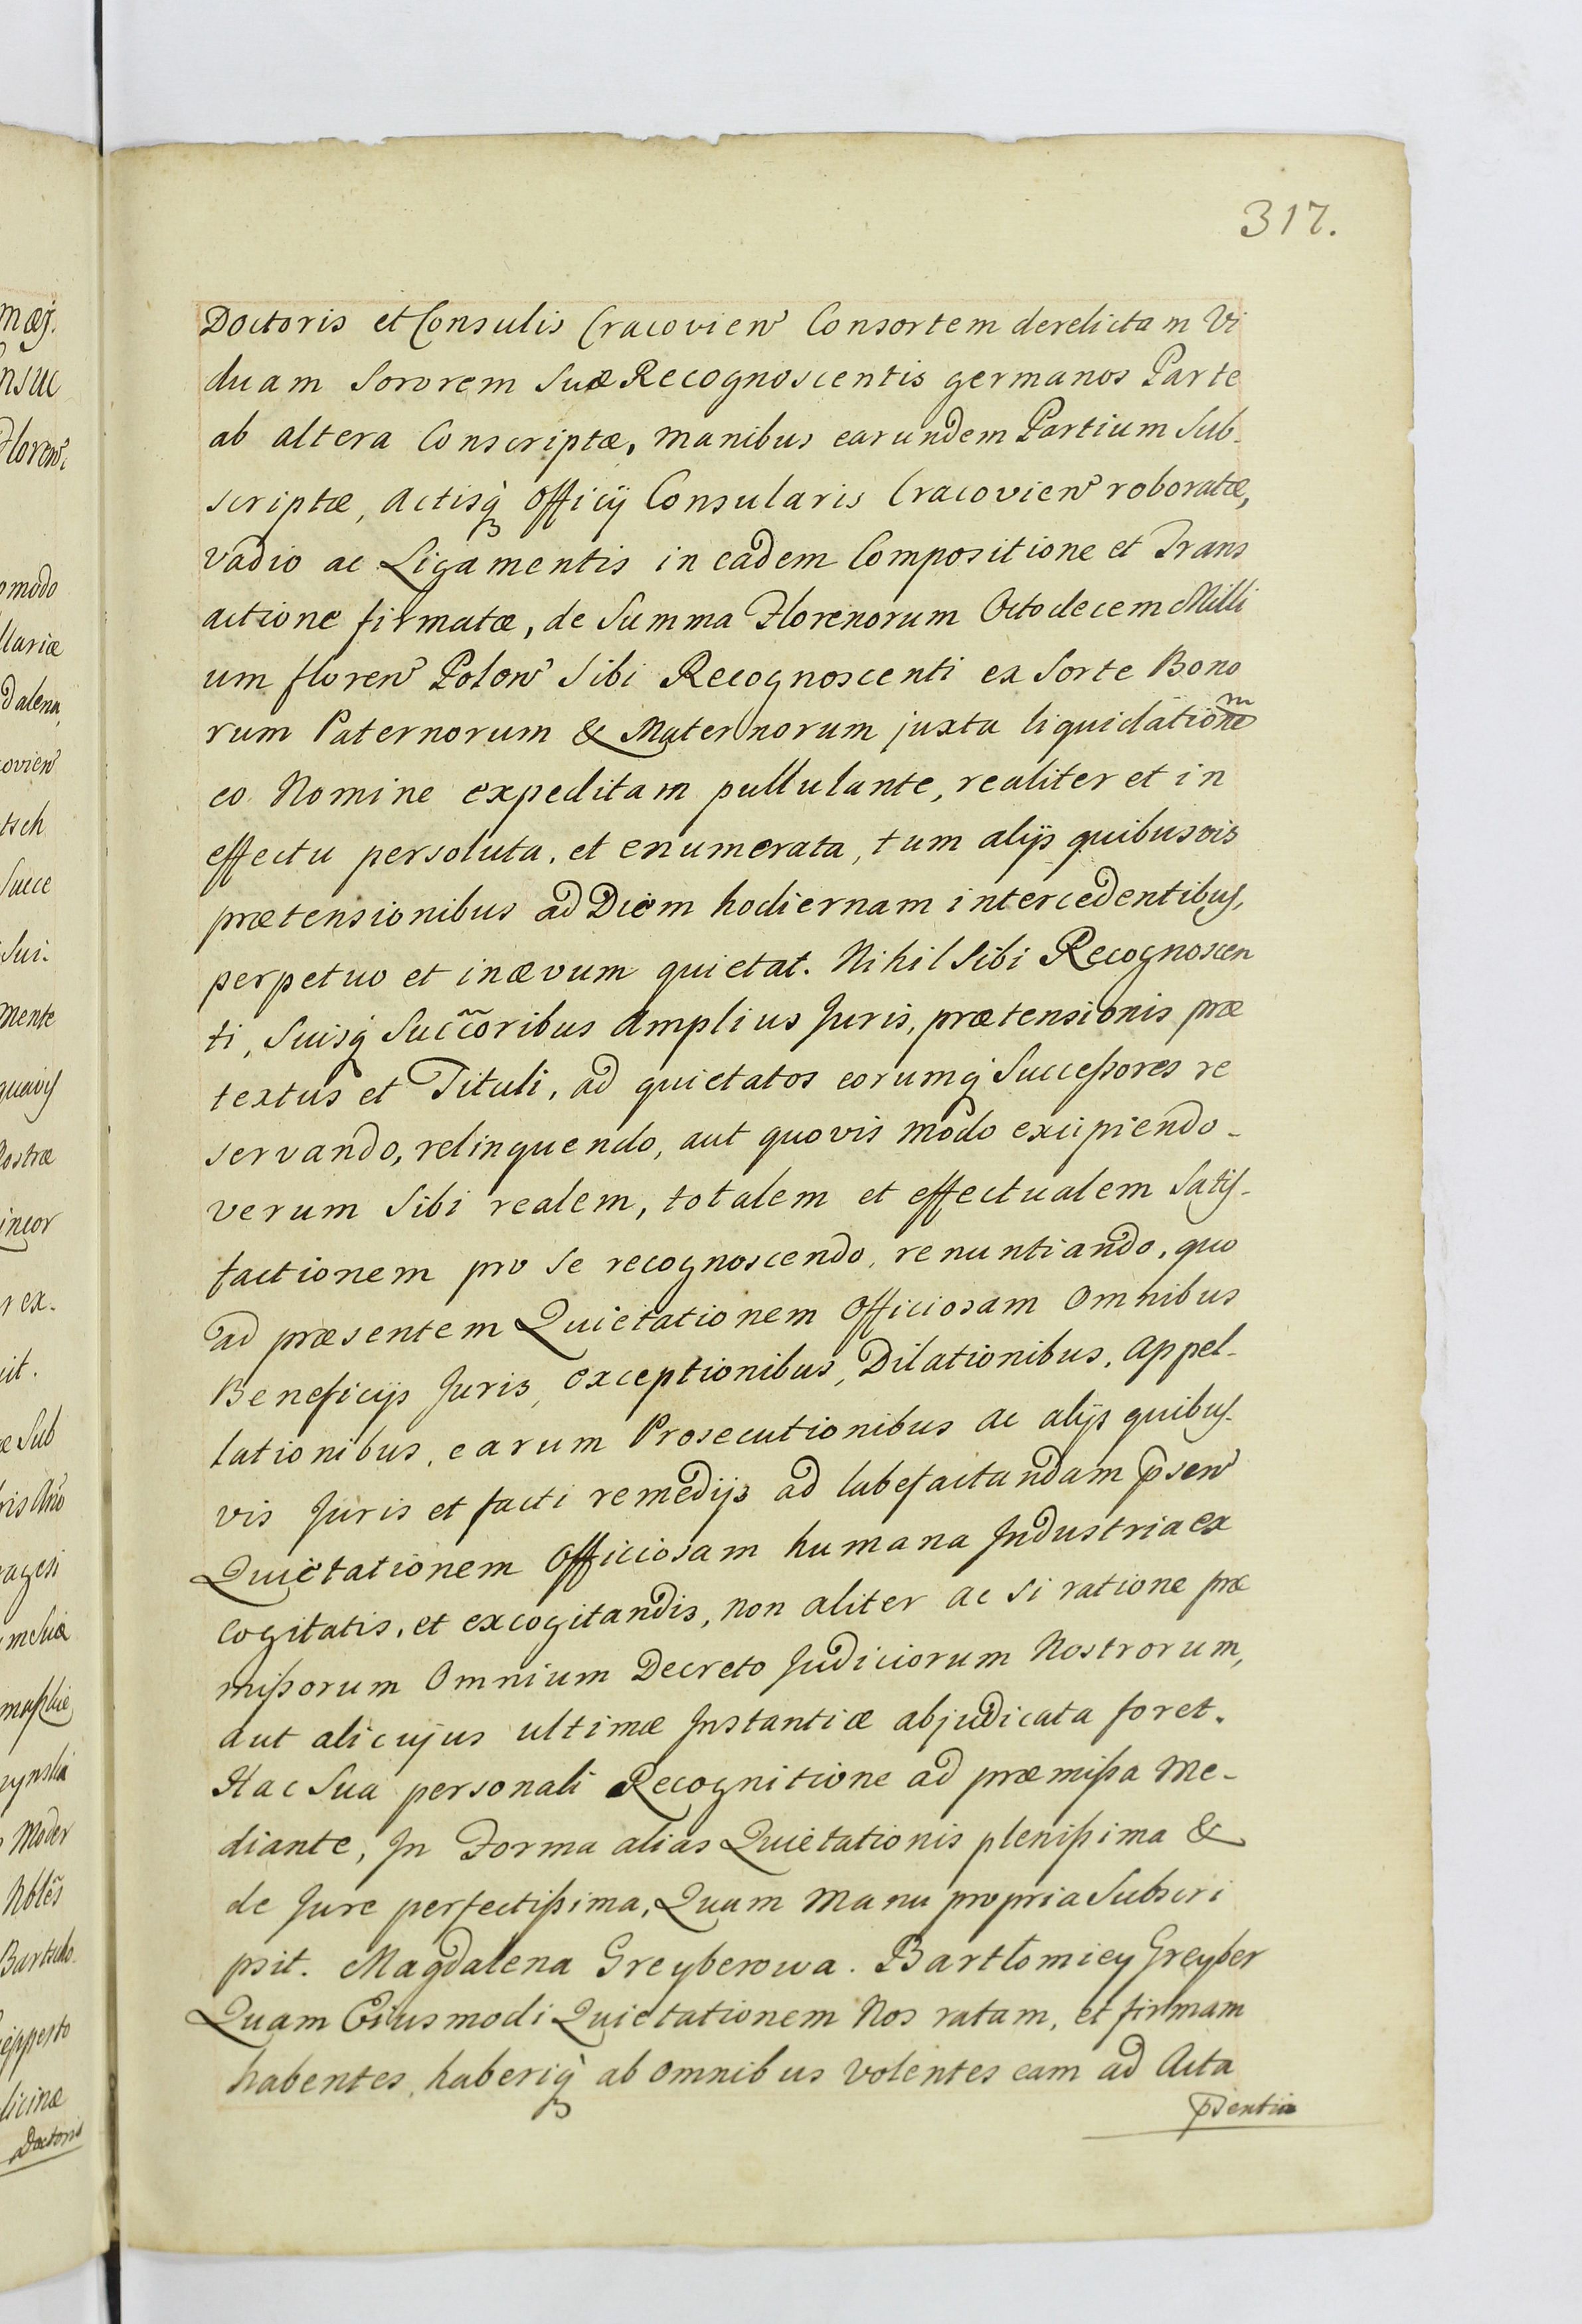 317.
Doctoris et Consulis Cracovien Consortem derelictam Vi
duam Sororem Suæ Recognoscentis germanos Parte
ab altera Conscriptæ, manibus earundem Partium Sub-
scriptæ, Actisq Officij Consularis Cracovien roboratæ,
vadio ac Ligamentis in eadem Compositione et Trans
actione firmatæ, de Summa Florenorum Octodecem Milli
um floren Polon Sibi Recognoscenti ex Sorte Bono
rum Paternorum & Maternorum juxta liquidationem
eo Nomine expeditam pullulante, realiter et in
effectu persoluta, et enumerata, tum alijs quibusvis
prætensionibus ad Diem hodiernam intercedentibus,
perpetuo et inævum quietat. Nihil Sibi Recognoscen
ti, Suisq Succoribus Amplius Juris, prætensionis præ
textus et Tituli, ad quietatos eorumq Successores re
servando, relinquendo, aut quovis modo excipiendo-
verum Sibi realem, totalem et effectualem Satis-
factionem pro se recognoscendo, renuntiando, quo
ad præsentem Quietationem Officiosam Omnibus
Beneficijs Juris, exceptionibus, Dilationibus, Appel-
lationibus, earum Prosecutionibus ac alijs quibus-
vis Juris et facti remedijs ad labefactandam psen
Quietationem Officiosam humana Industria ex
cogitatis, et excogitandis, non aliter ac si ratione præ
missorum Omnium Decreto Judiciorum Nostrorum,
aut alicujus ultimæ Instantiæ abjudicata foret.
Hac Sua personali Recognitione ad præmissa me-
diante, In Forma alias Quietationis plenissima &
de Jure perfectissima, Quam manu propria Subscri
psit. Magdalena Greyberowa. Bartłomiey Greyber
Quam Eiusmodi Quietationem Nos ratam, et firmam
habentes, haberiq ab omnibus volentes eam ad Acta
psentia